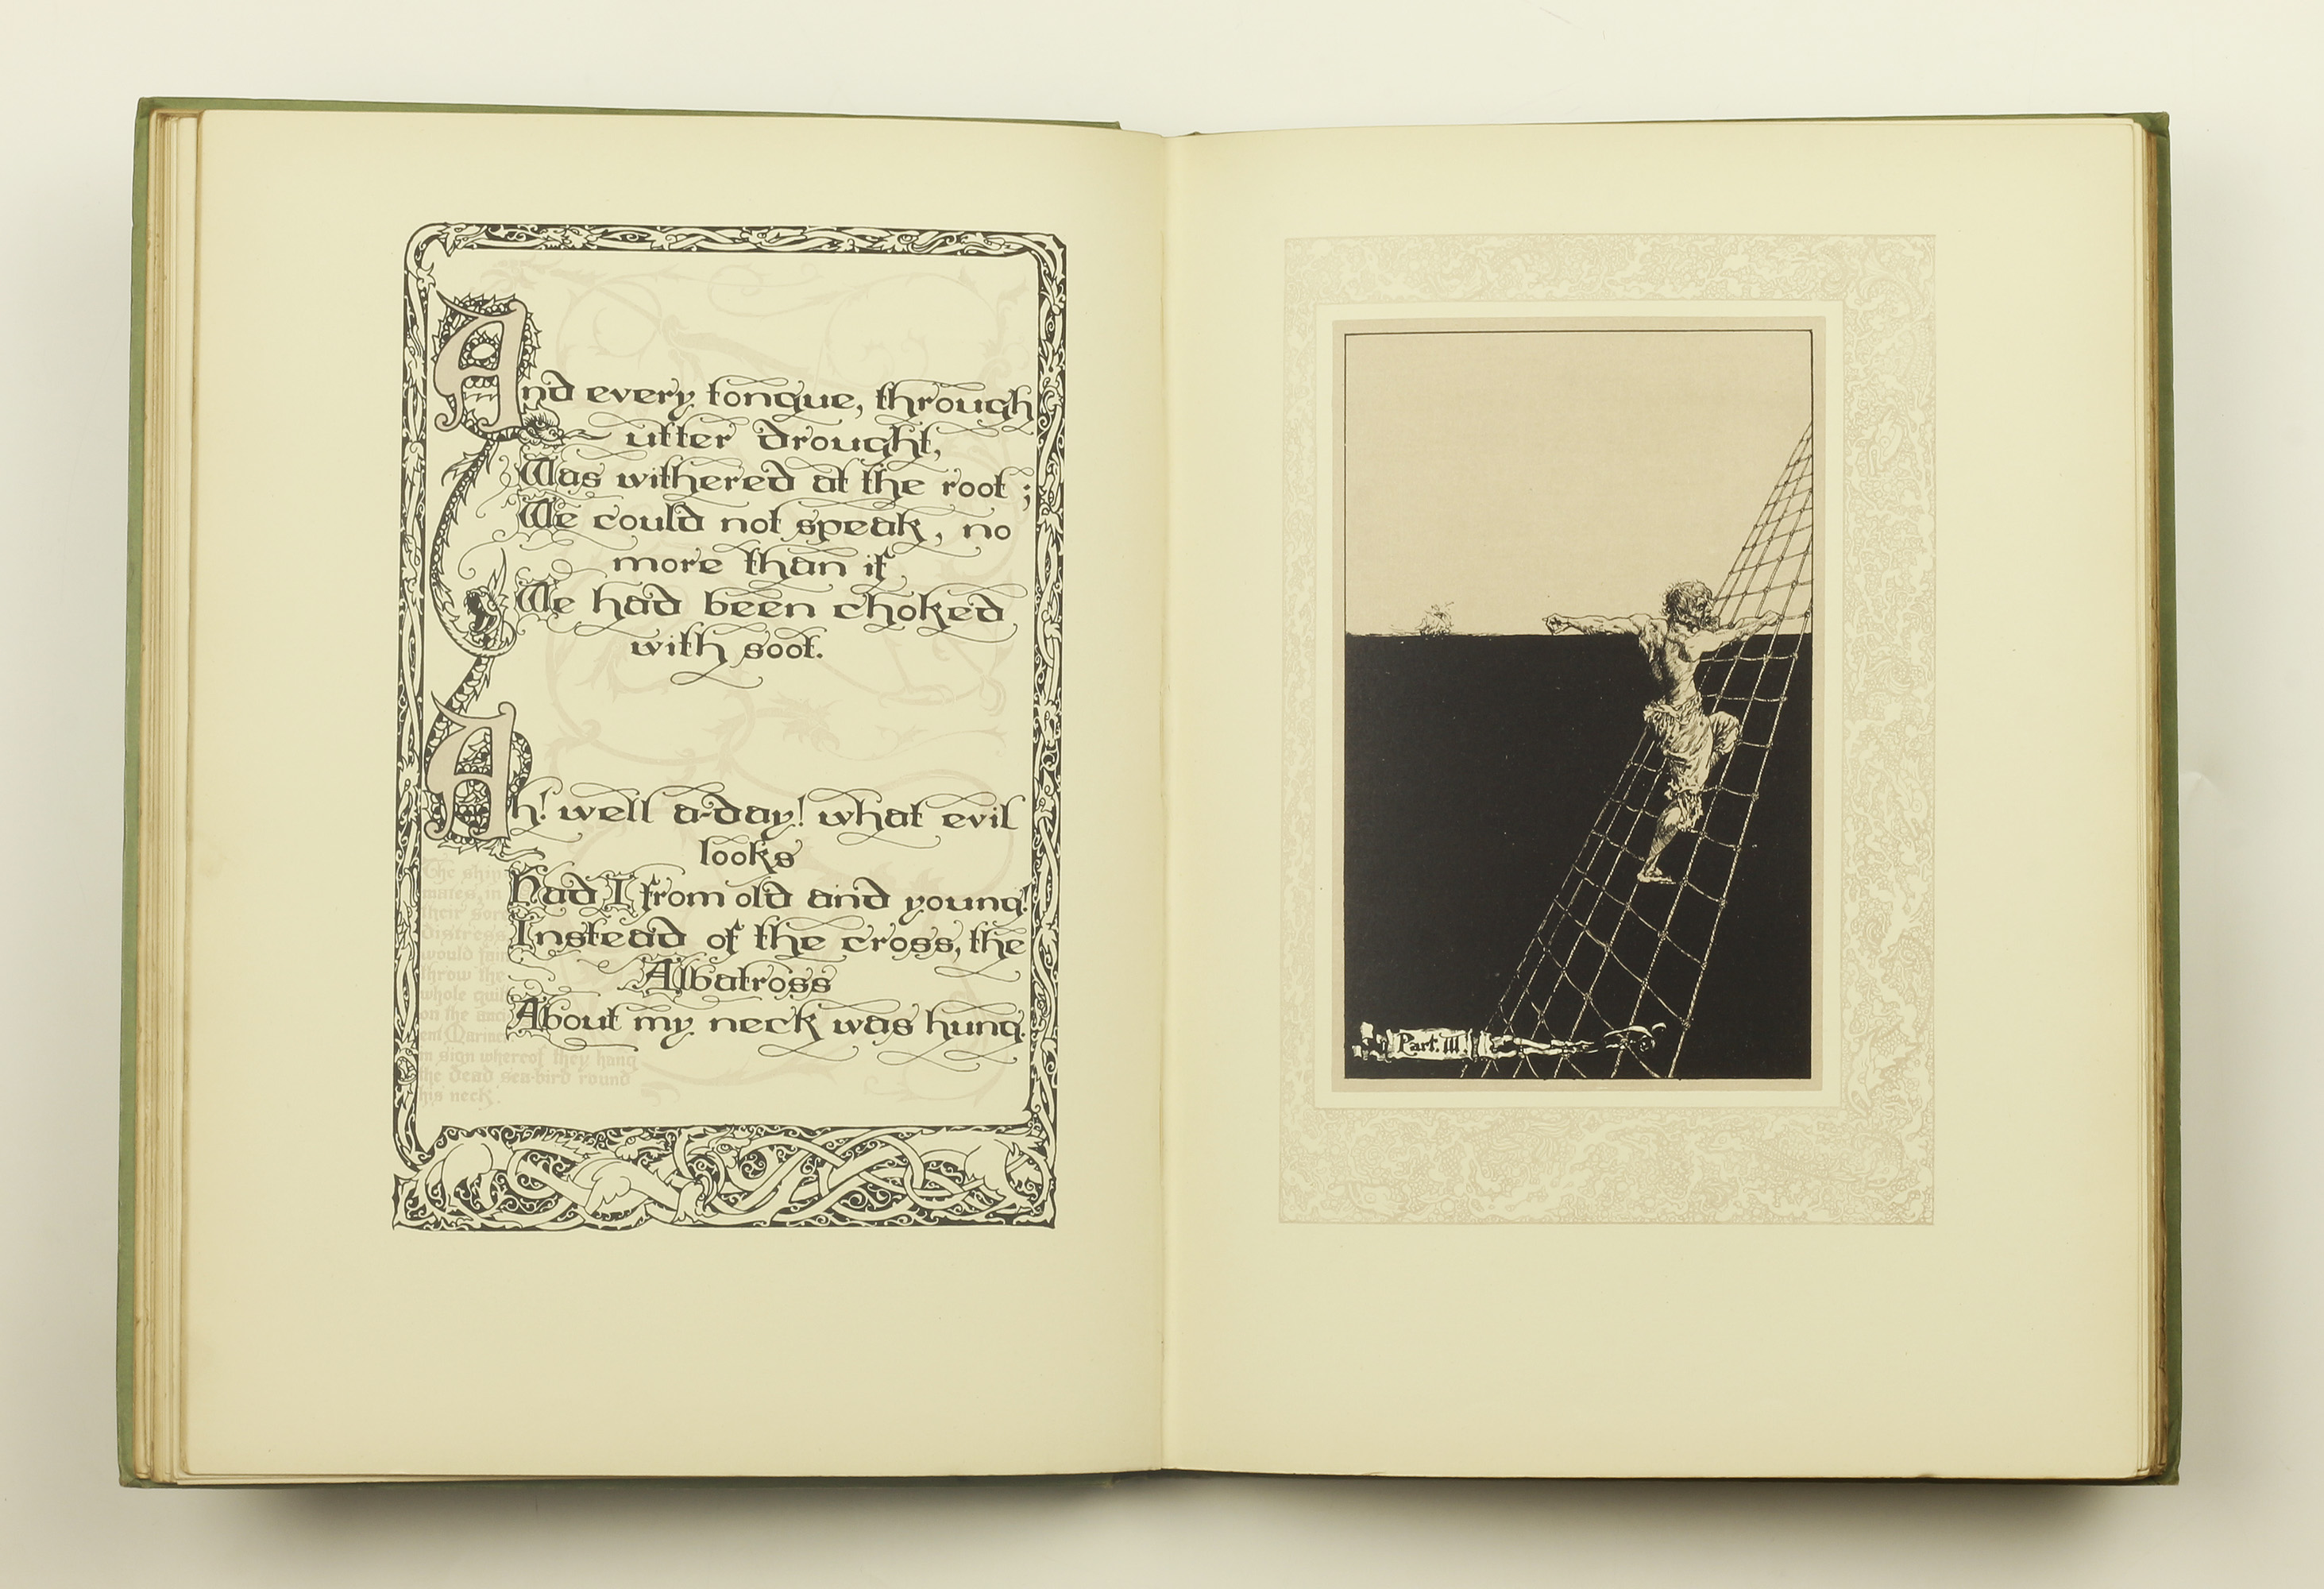 And every tongue, through
utter drought,
Was withered at the root ;
We could not speak, no
more than if
We had been choked
with soot.
Ah! well a-day! what evil
looks
Had I from old and young!
Instead of the cross, the
Albatross
About my neck was hung.
The ship
mates, in
their sore
distress,
would fain
throw the
whole guilt
on the anci
ent Mariner:
in sign whereof they hang
the dead sea-bird round
his neck.
Part. III.